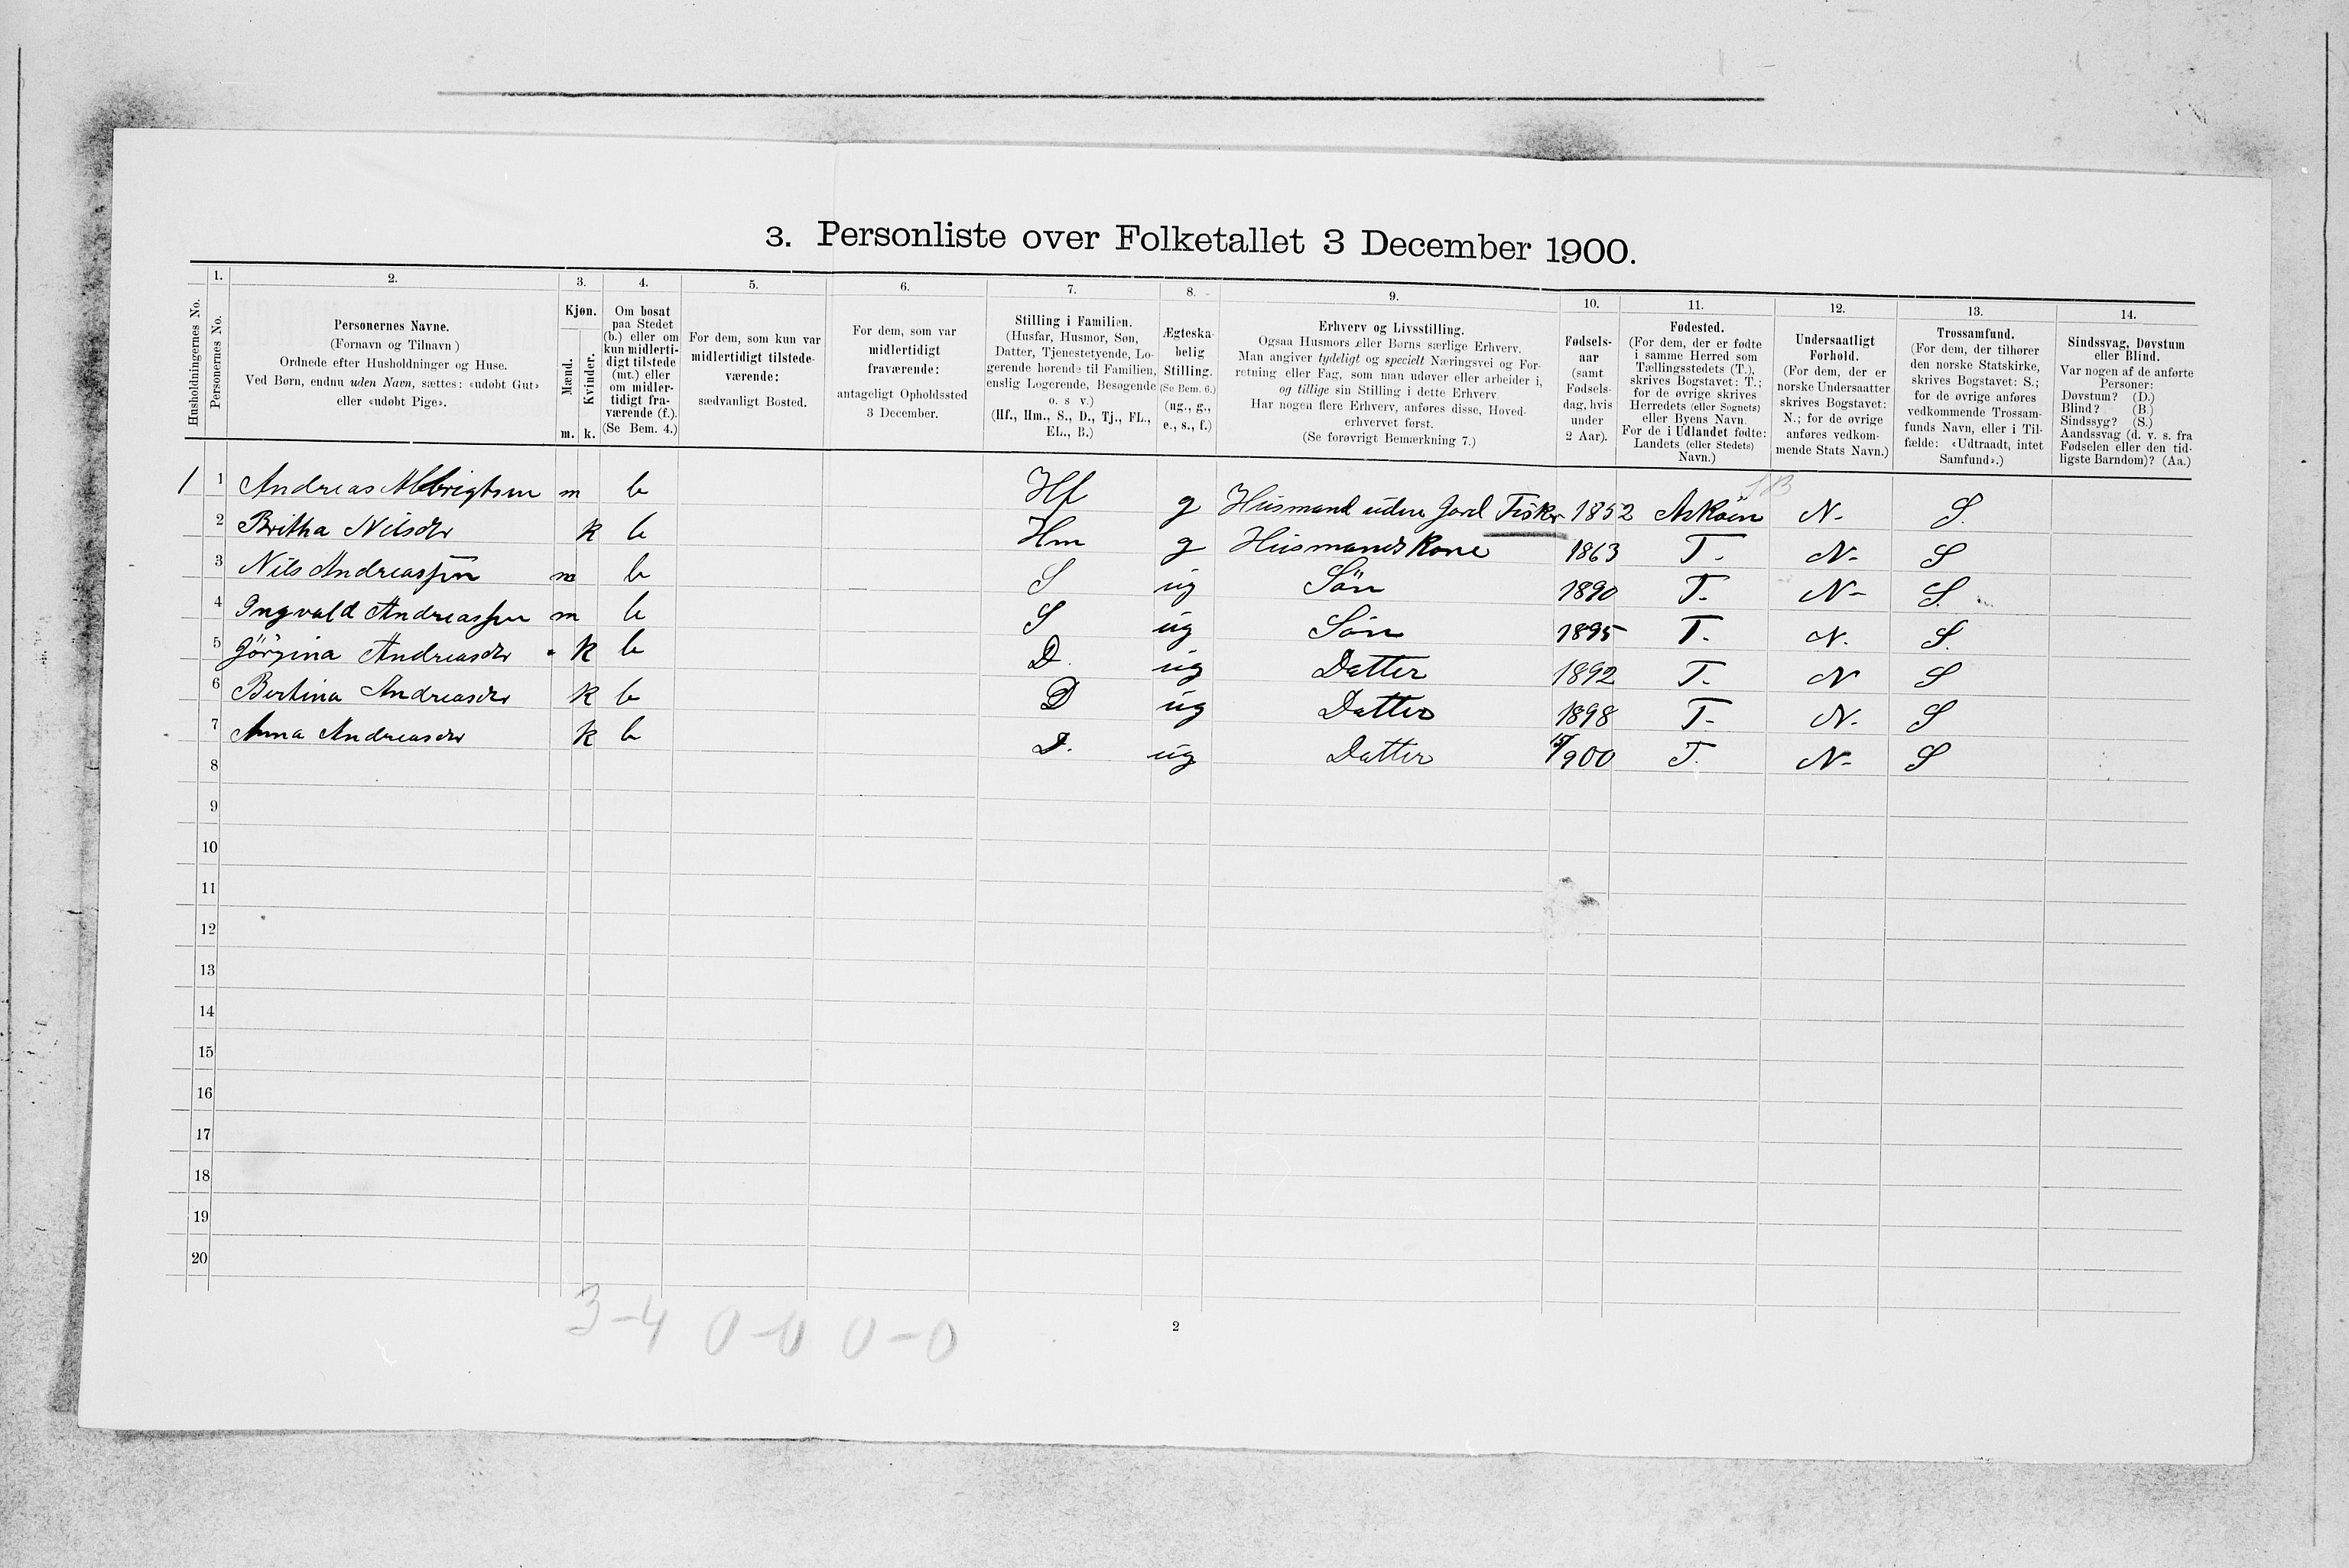 3. Personliste over Folketallet 3 December 1900.
1. 2. 3. 4. 5. 6. 7. 8. 9. 10. 11. 12. 13. 14.
Husholdningernes No.
Personernes No.
Personernes Navne.
(Fornavn og Tilnavn )
Ordnede efter Husholdninger og Huse.
Ved Børn, endnu uden Navn, sættes: «udøbt Gut»
eller «udøbt Pige».
Kjøn.
Mænd.
Kvinder.
m. k.
Om bosat
paa Stedet
(b.) eller om
kun midlerti-
digt tilstede
(mt.) eller
om midler-
tidigt fra-
værende (f.).
(Se Bem. 4.)
For dem, som kun var
midlertidigt tilstede-
værende:
sædvanligt Bosted.
For dem, som var
midlertidigt
fraværende:
antageligt Opholdssted
3 December.
Stilling i Familien.
(Husfar, Husmor, Søn,
Datter, Tjenestetyende, Lo-
gerende hørende til Familien,
enslig Logerende, Besøgende
o. s v.)
(Hf., Hm., S., D., Tj., FL.,
EL., B.)
Ægteska-
belig
Stilling.
(Se Bem. 6.)
(ug., g.,
e., s., f.)
Erhverv og Livsstilling.
Ogsaa Husmors eller Børns særlige Erhverv.
Man angiver tydeligt og specielt Næringsvei og For-
retning eller Fag, som man udøver eller arbeider i,
og tillige sin Stilling i dette Erhverv.
Har nogen flere Erhverv, anføres disse, Hoved-
erhvervet først.
(Se forøvrigt Bemærkning 7.)
Fødsels-
aar
(samt
Fødsels-
dag, hvis
under
2 Aar).
Fødested.
(For dem, der er fødte
i samme Herred som
Tællingsstedets (T.),
skrives Bogstavet: T.;
for de øvrige skrives
Herredets (eller Sognets)
eller Byens Navn.
For de i Udlandet fødte:
Landets (eller Stedets)
Navn.)
Undersaatligt
Forhold.
(For dem, der er
norske Undersaatter
skrives Bogstavet:
N.; for de øvrige
anføres vedkom-
mende Stats Navn.)
Trossamfund.
(For dem, der tilhører
den norske Statskirke,
skrives Bogstavet: S.;
for de øvrige anføres
vedkommende Trossam-
funds Navn, eller i Til-
fælde: «Udtraadt, intet
Samfund».)
Sindssvag, Døvstum
eller Blind.
Var nogen af de anførte
Personer:
Døvstum? (D.)
Blind? (B.)
Sindssyg? (S.)
Aandssvag (d. v. s. fra
Fødselen eller den tid-
ligste Barndom)? (Aa.)
1 1 Andreas Albrigtsen m b Hf g Husmand uden Jord Fisker 1852 Askøen N. S.
2 Britha Nilsdtr k b Hm g Husmands Kone 1863 T. N. S
3 Nils Andreassen m b S ug Sön 1890 T. N. S.
4 Ingvald Andreassen m b S ug Sön 1895 T. N. S.
5 Görgina Andreasdtr k b D. ug Datter 1892 T. N S
6 Bertina Andreasdtr k b D ug Datter 1898 T. N. S
7 Anna Andreasdtr k b D. ug Datter 900 T. N. S
8
9
10
11
12
13
14
15
16
17
18
19
20
3-4 0-0 0-0
2